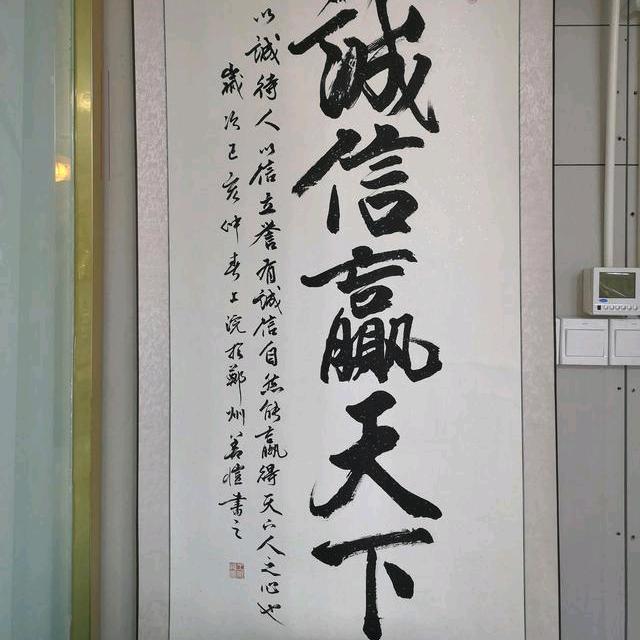 誠信贏天下
以誠待人以信立譽有誠信自然能贏得天下人之心也
歲次己亥仲春上浣於鄭州善愷書之